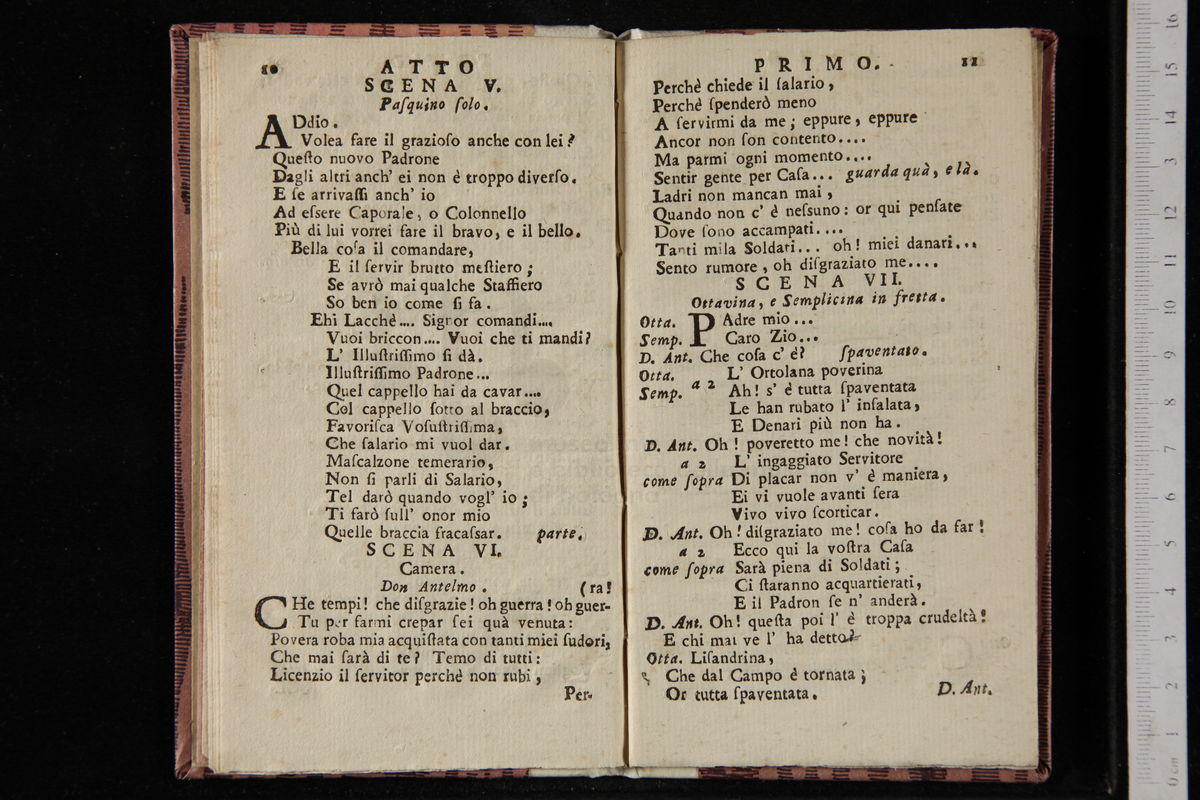 10 ATTO
SCENA V.
Paſquino ſolo.
ADdio.
Volea fare il grazioſo anche con lei?
Queſto nuovo Padrone
Dagli altri anch' ei non è troppo diverſo.
E ſe arrivaſſi anch' io
Ad eſsere Caporale, o Colonnello
Più di lui vorrei fare il bravo, e il bello.
Bella coſa il comandare,
E il ſervir brutto meſtiero;
Se avrò mai qualche Staffiero
So ben io come ſi fa.
Ehi Lacchè.... Signor comandi....
Vuoi briccon.... Vuoi che ti mandi?
L' Illuſtriſſimo ſi dà.
Illuſtriſſimo Padrone...
Quel cappello hai da cavar....
Col cappello ſotto al braccio,
Favoriſca Voſuſtriſſima,
Che ſalario mi vuol dar.
Maſcalzone temerario,
Non ſi parli di Salario,
Tel darò quando vogl' io;
Ti farò ſull' onor mio
Quelle braccia fracaſsar. parte.
SCENA VI.
Camera.
Don Antelmo. (ra!
CHe tempi! che diſgrazie! oh guerra! oh guer-
Tu per farmi crepar ſei quà venuta:
Povera roba mia acquiſtata con tanti miei ſudori,
Che mai ſarà di te? Temo di tutti:
Licenzio il ſervitor perchè non rubi,
Per-
PRIMO. 11
Perchè chiede il ſalario,
Perchè ſpenderò meno
A ſervirmi da me; eppure, eppure
Ancor non ſon contento....
Ma parmi ogni momento....
Sentir gente per Caſa... guarda quà, e là.
Ladri non mancan mai,
Quando non c' è neſsuno: or qui penſate
Dove ſono accampati....
Tanti mila Soldati... oh! miei danari...
Sento rumore, oh diſgraziato me....
SCENA VII.
Ottavina, e Semplicina in fretta.
Otta. PAdre mio...
Semp. Caro Zio...
D. Ant. Che coſa c' è? ſpaventato.
Otta. L' Ortolana poverina
Semp. a 2 Ah! s' è tutta ſpaventata
Le han rubato l' inſalata,
E Denari più non ha.
D. Ant. Oh! poveretto me! che novità!
a 2 L' ingaggiato Servitore
come ſopra Di placar non v' è maniera,
Ei vi vuole avanti ſera
Vivo vivo ſcorticar.
D. Ant. Oh! diſgraziato me! coſa ho da far!
a 2 Ecco qui la voſtra Caſa
come ſopra Sarà piena di Soldati;
Ci ſtaranno acquartierati,
E il Padron ſe n' anderà.
D. Ant. Oh! queſta poi l' è troppa crudeltà!
E chi mai ve l' ha detto?
Otta. Liſandrina,
Che dal Campo è tornata;
Or tutta ſpaventata.
D. Ant.